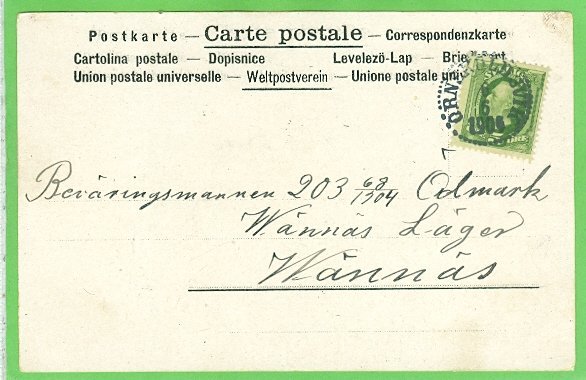 Postkarte — Carte postale — Correspondenzkarte
Cartolina postale — Dopisnice Levelezö-Lap —
Union postale universelle — Weltpostverein — Unione postale
ÖRN
6
Beväringsmannen 203 68/1904 Odmark
Wännäs Läger
Wännäs